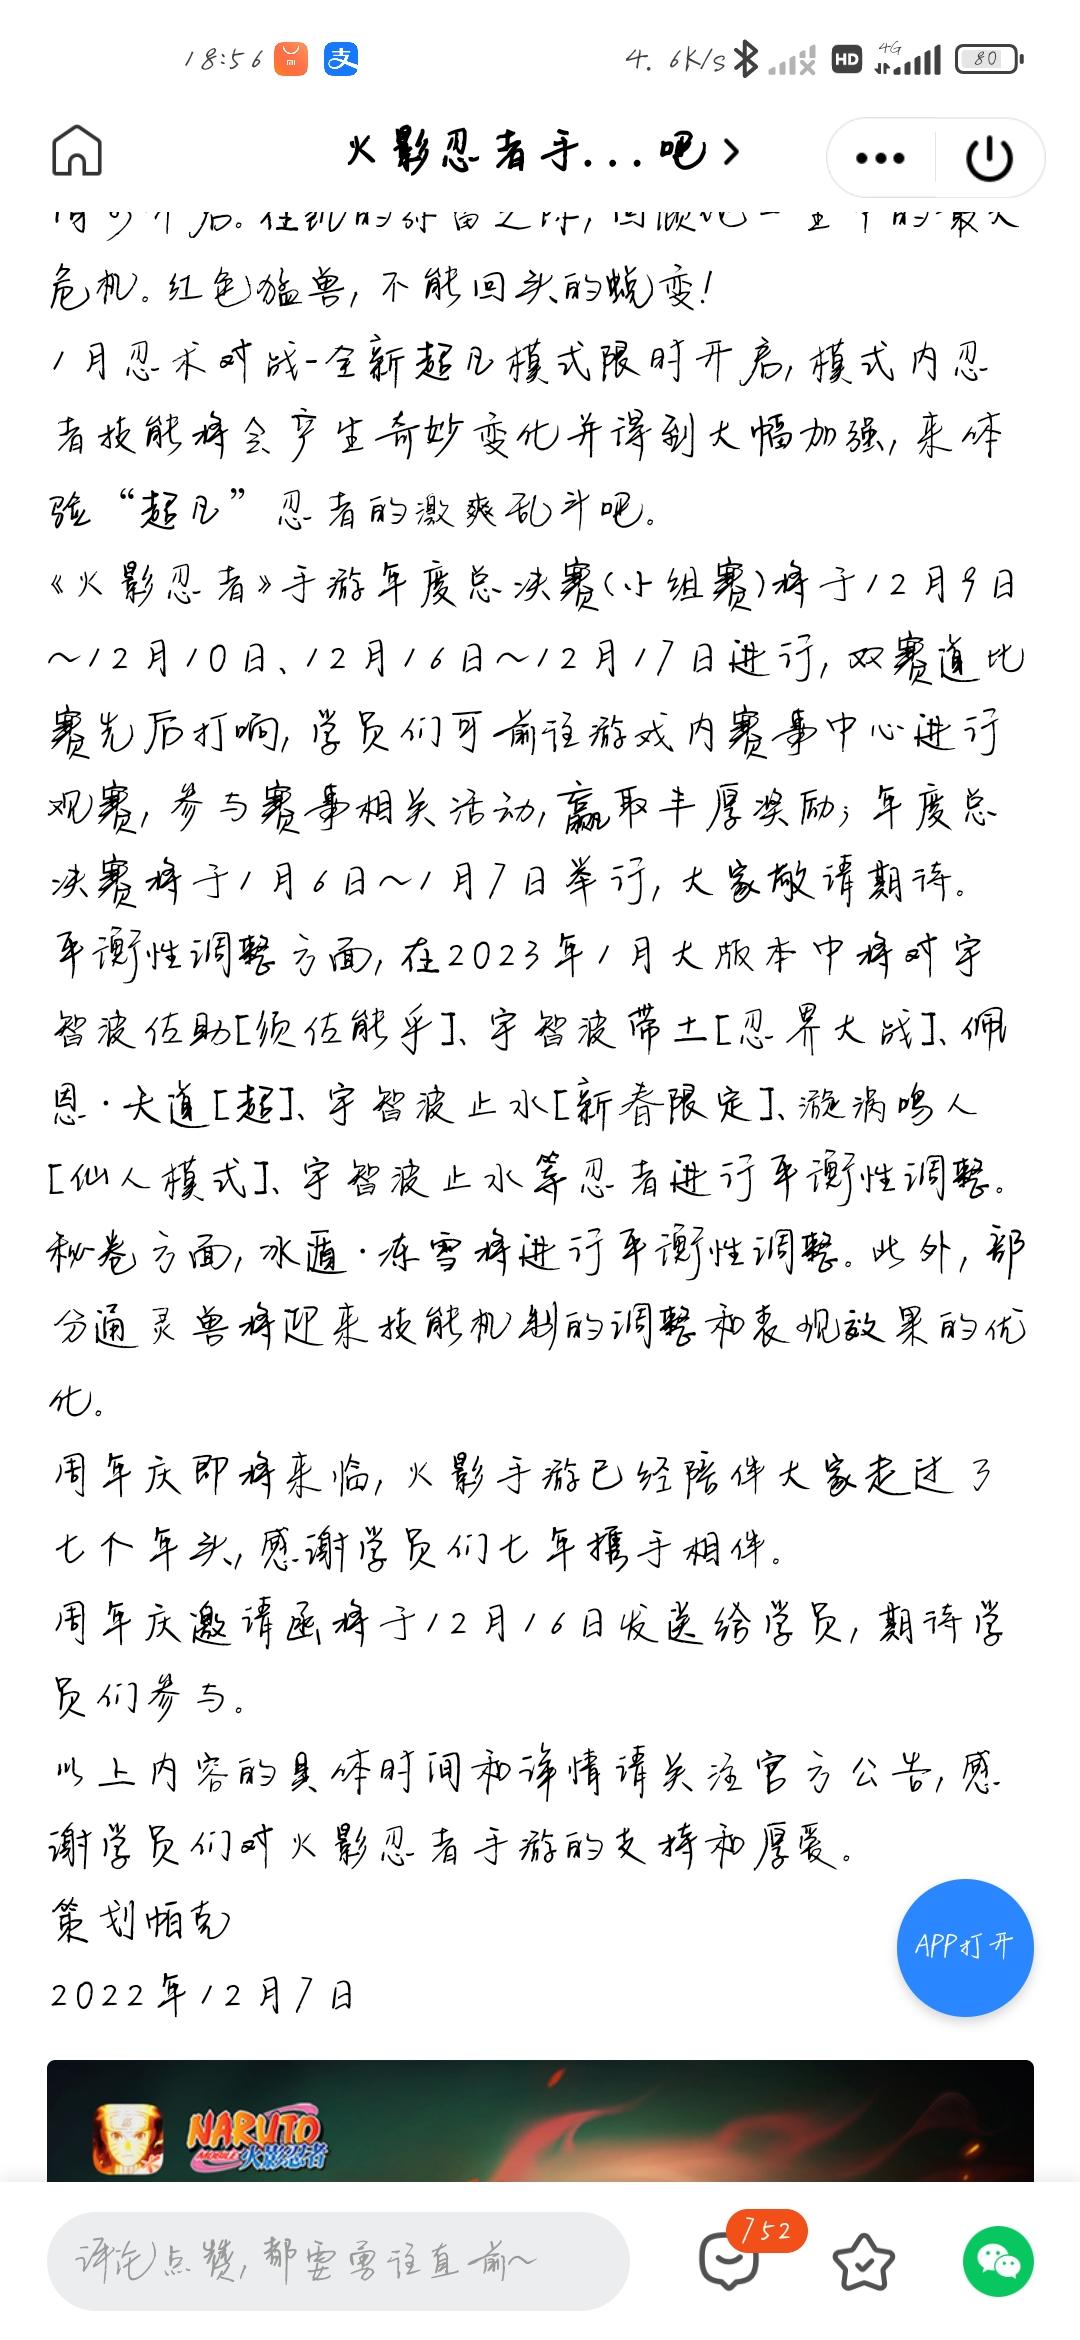 18:56
4.6K/s HD 4G 80
火影忍者手...吧
危机。红色猛兽,不能回头的蜕变!
1月忍术对战-全新超凡模式限时开启,模式内忍
者技能将会产生奇妙变化并得到大幅加强,来体
验“超凡”忍者的激爽乱斗吧。
《火影忍者》手游年度总决赛(小组赛)将于12月9日
~12月10日、12月16日~12月17日进行,双赛道比
赛先后打响,学员们可前往游戏内赛事中心进行
观赛,参与赛事相关活动,赢取丰厚奖励;年度总
决赛将于1月6日~1月7日举行,大家敬请期待。
平衡性调整方面,在2023年1月大版本中将对宇
智波佐助[须佐能乎]、宇智波带土[忍界大战]、佩
恩·天道[超]、宇智波止水[新春限定]、漩涡鸣人
[仙人模式]、宇智波止水等忍者进行平衡性调整。
秘卷方面,冰遁·冻雪将进行平衡性调整。此外,部
分通灵兽将迎来技能机制的调整和表现效果的优
化。
周年庆即将来临,火影手游已经陪伴大家走过了
七个年头,感谢学员们七年携手相伴。
周年庆邀请函将于12月16日发送给学员,期待学
员们参与。
以上内容的具体时间和详情请关注官方公告,感
谢学员们对火影忍者手游的支持和厚爱。
策划帕克
2022年12月7日
APP打开
NARUTO
MOBILE 火影忍者
评论点赞,都要勇往直前~
752